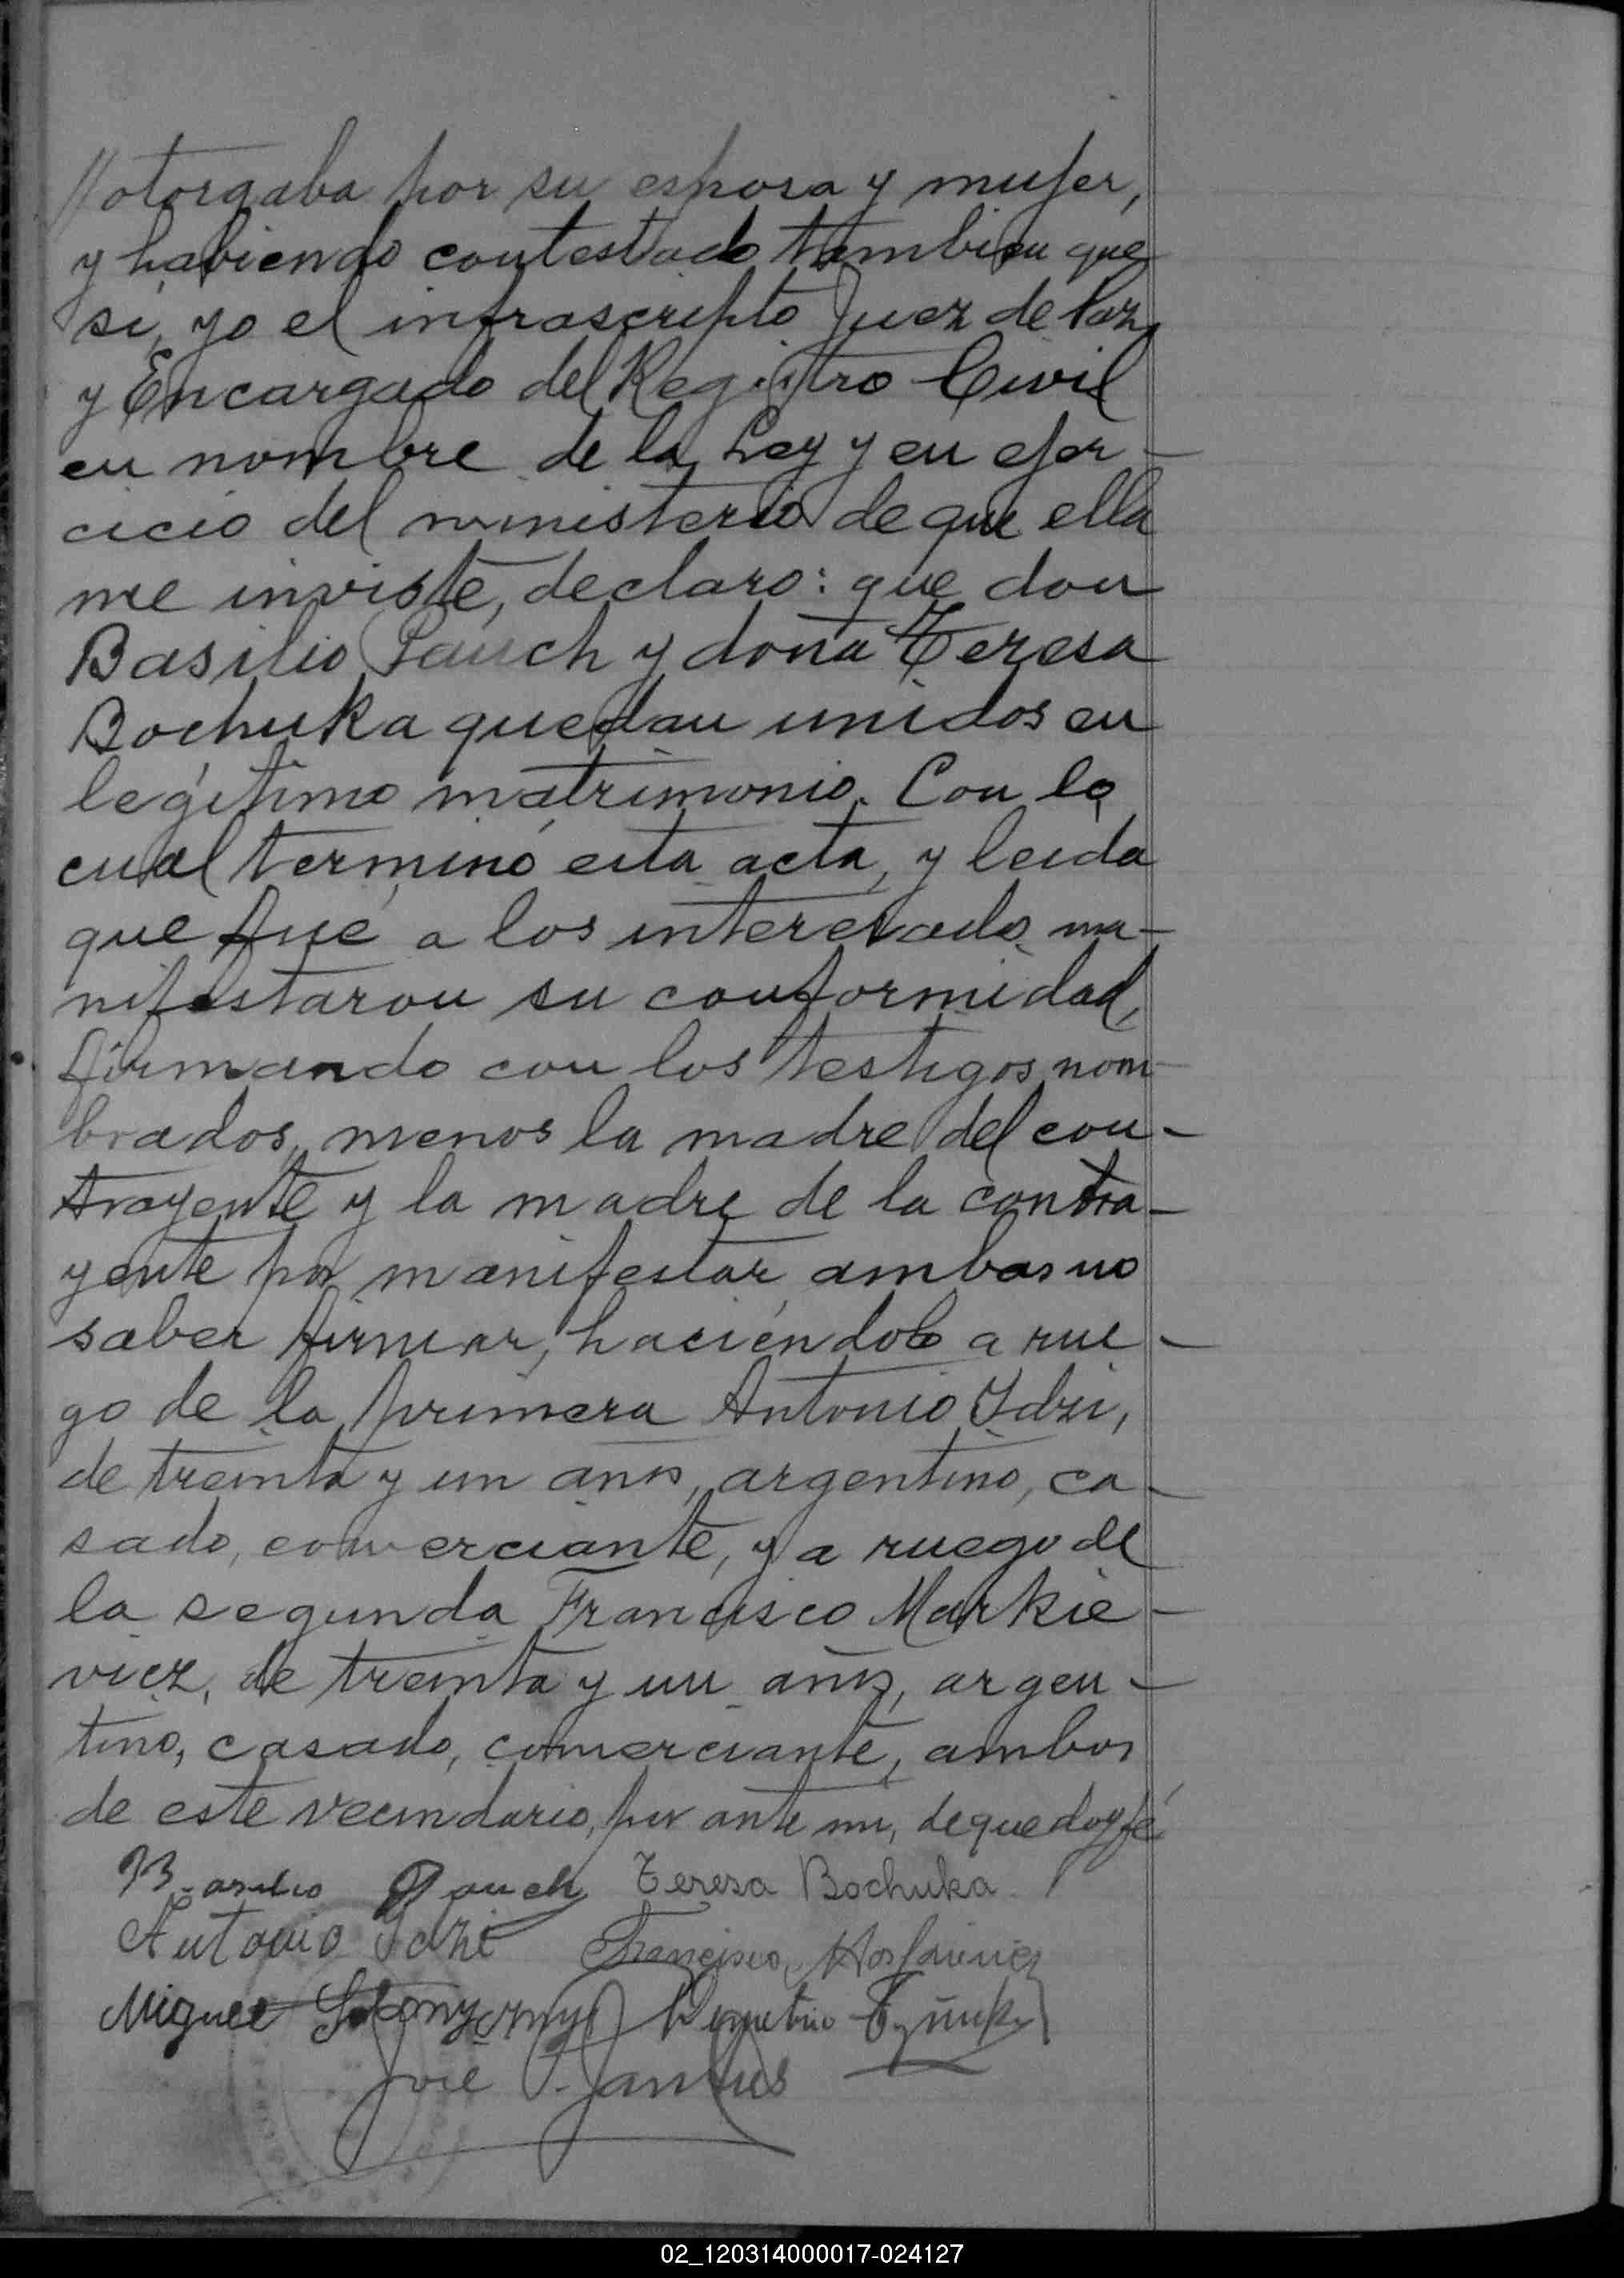 //otorgaba por su esposa y mujer,
y habiendo contestado tambien que
si, yo el infrascripto Juez de Paz,
y Encargado del Registro Civil
en nombre de la Ley y en ejer-
cicio del ministerio de que ella
me inviste, declaro: que don
Basilio Pauch y doña Teresa
Bochuka quedan unidos en
legítimo matrimonio. Con lo
cual terminó esta acta, y leida
que fué a los interesados ma-
nifestaron su conformidad,
firmando con los testigos nom-
brados, menos la madre del con-
trayente y la madre de la contra-
yente por manifestar ambas no
saber firmar, haciéndolo a rue-
go de la primera Antonio Idzi,
de treinta y un años, argentino, ca-
sado, comerciante, y a ruego de
la segunda Francisco Markie-
vicz, de treinta y un años, argen-
tino, casado, comerciante, ambos
de este vecindario, por ante mi, de que doy fé
Basilio Pauch Teresa Bochuka
Antonio Idzi Francisco
Miguel Demetrio
José
02_120314000017-024127